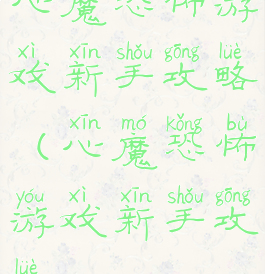 心魔恐怖游
xì xīn shǒu gōng lüè
戏新手攻略
xīn mó kǒng bù
（心魔恐怖
yóu xì xīn shǒu gōng
游戏新手攻
lüè